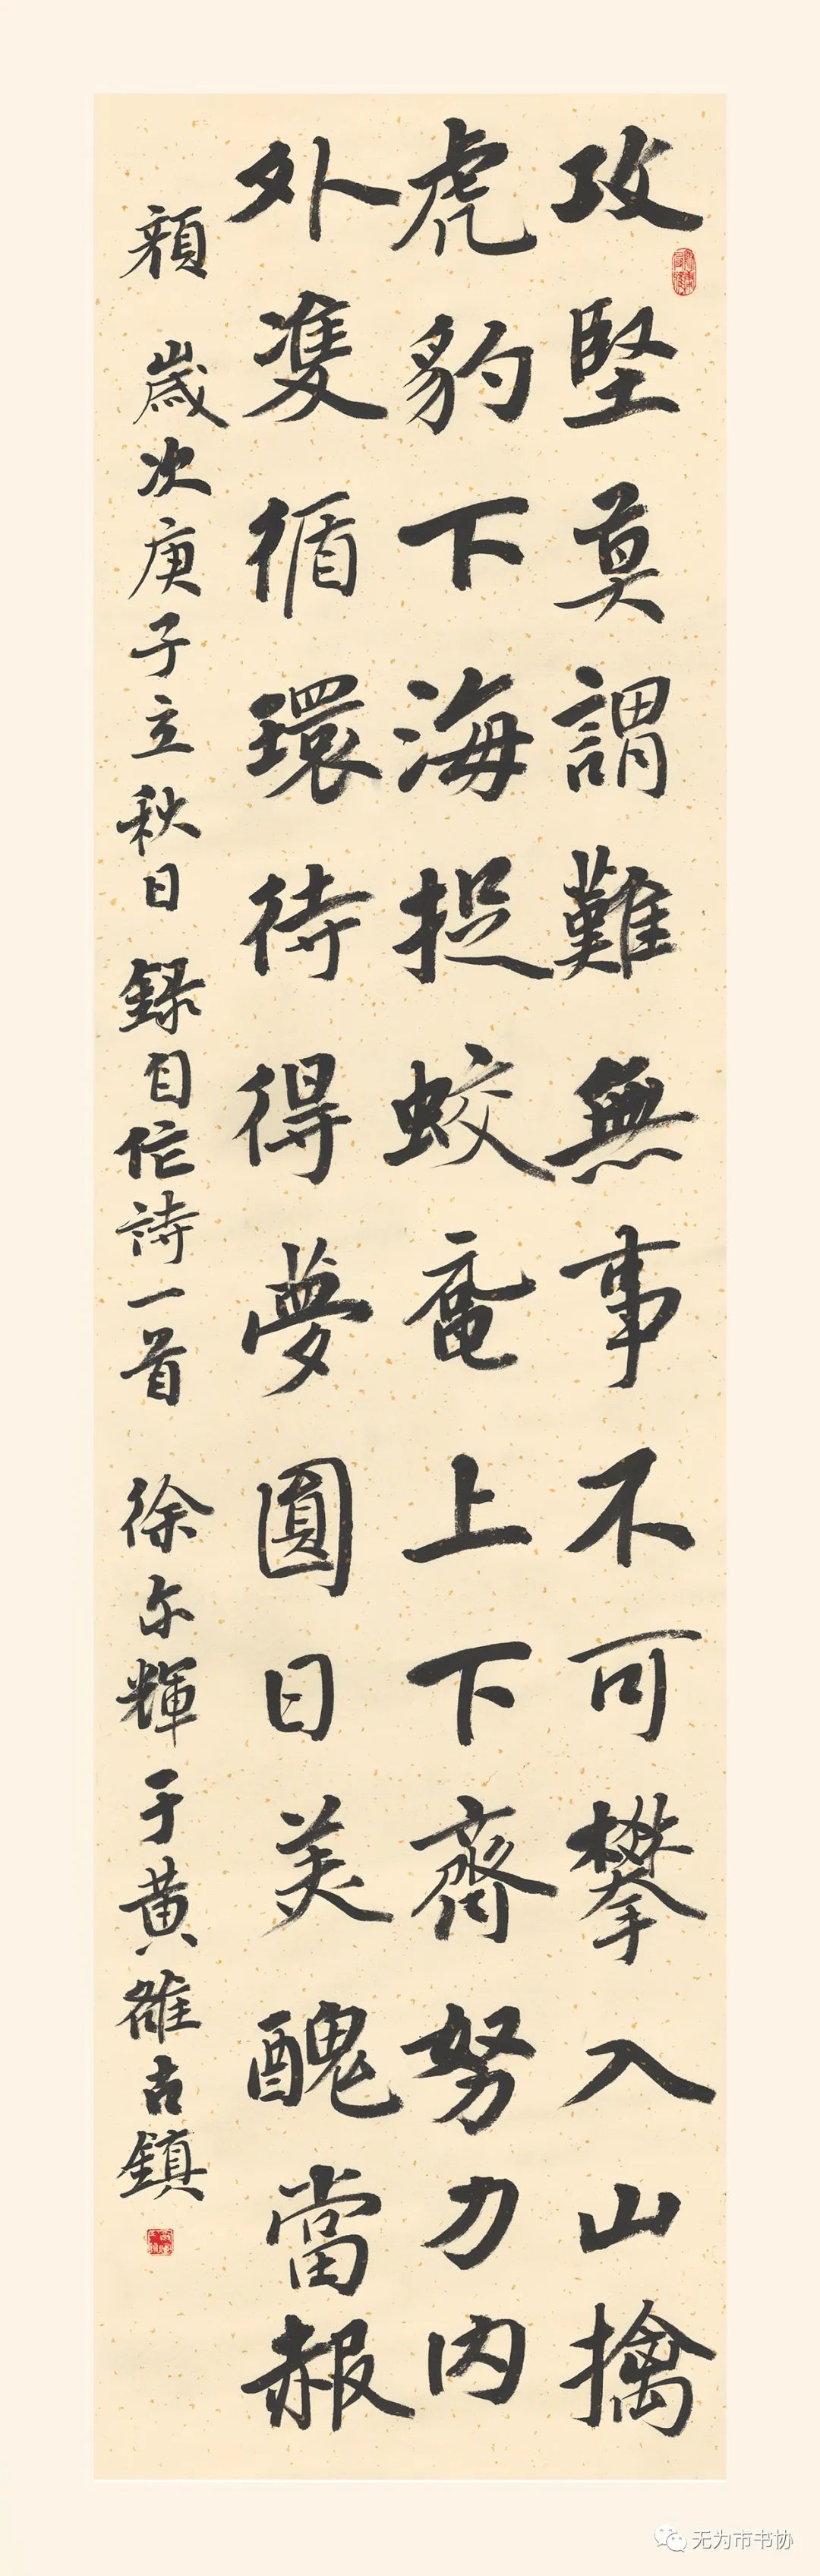 攻堅莫謂難無事不可攀入山擒
虎豹下海捉蛟鼋上下齊努力内
外雙循環待得夢圓日美醜當赧
顔 歲次庚子立秋日 録自作詩一首 徐尔輝于黄雒古鎮
无为市书协